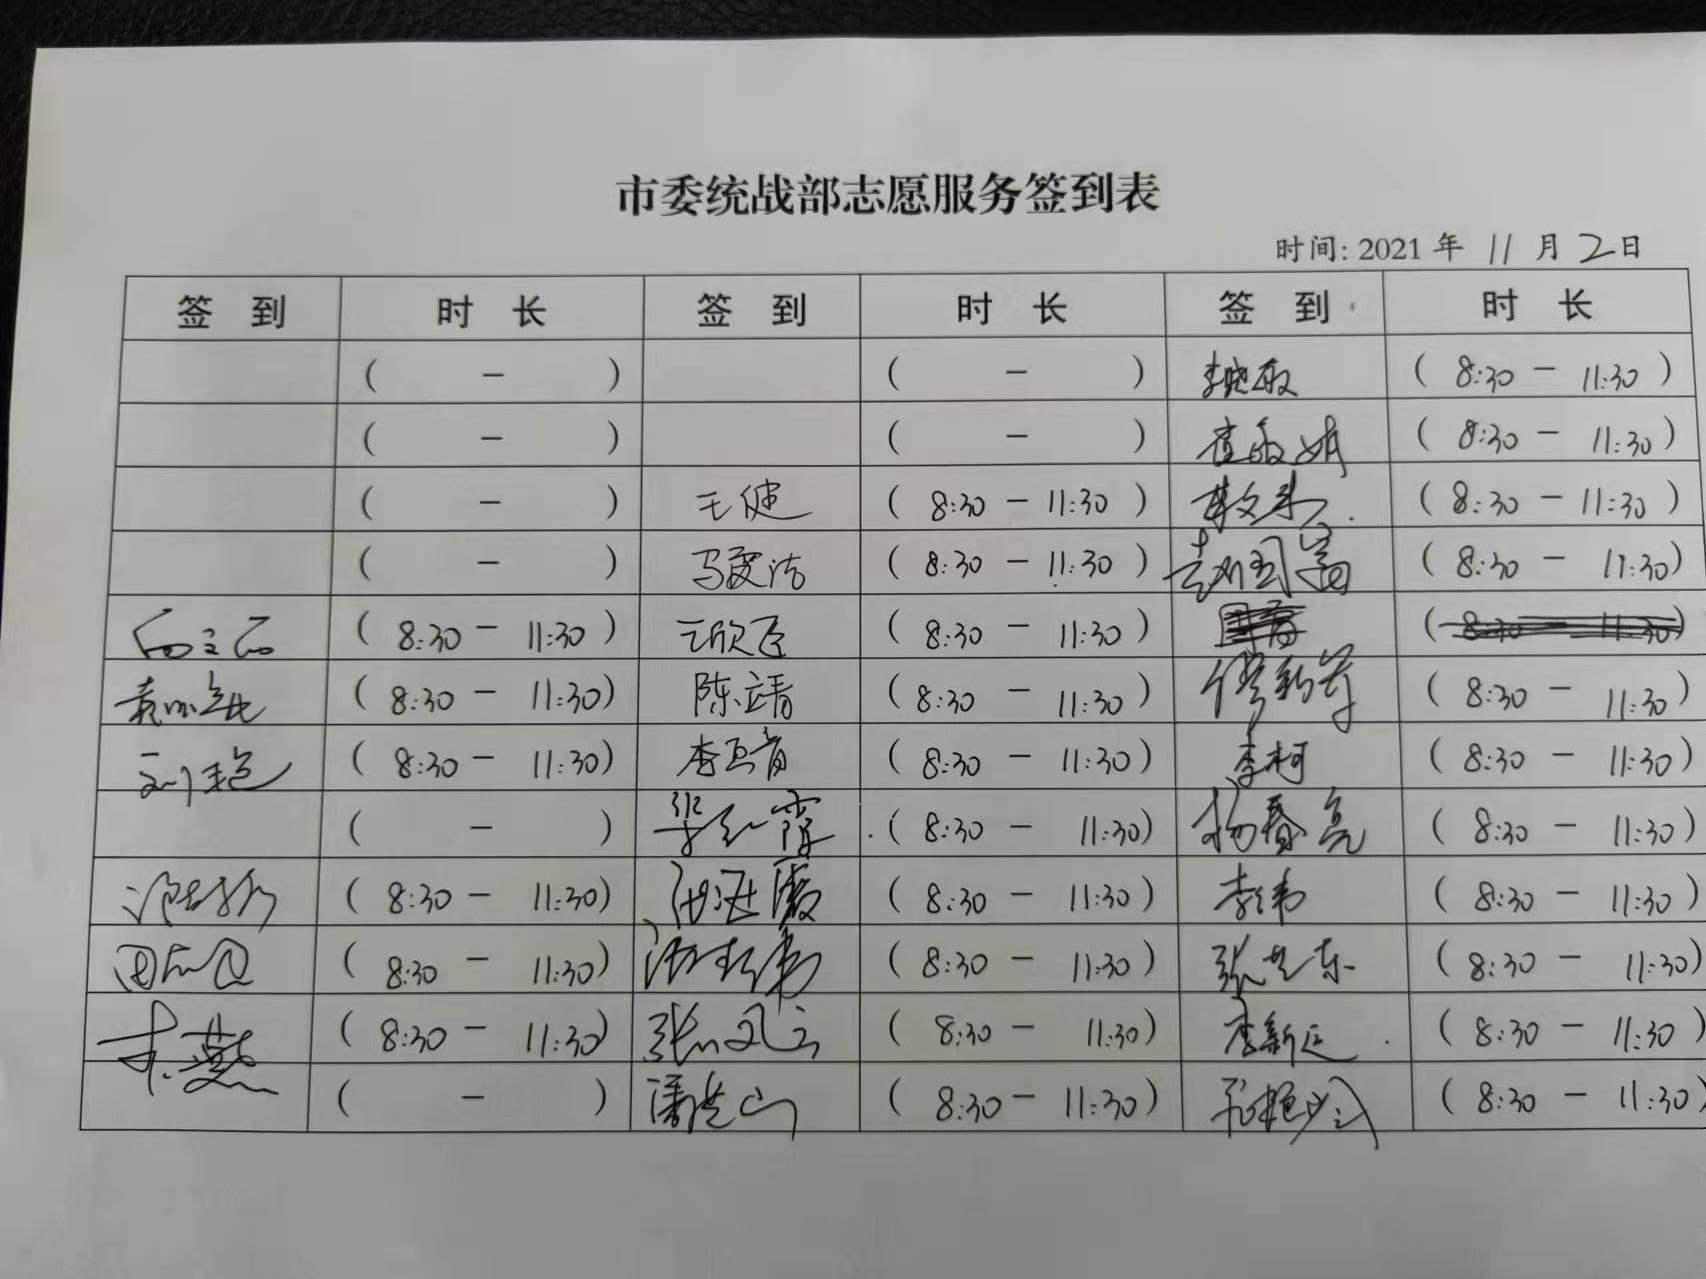 市委统战部志愿服务签到表
时间: 2021 年 11 月 2 日
签 到 时 长 签 到 时 长 签 到 时 长
( - ) ( - ) 李晓敏 ( 8:30 - 11:30 )
( - ) ( - ) 崔敬娟 ( 8:30 - 11:30 )
( - ) 王健 ( 8:30 - 11:30 ) ( 8:30 - 11:30 )
( - ) 马雯洁 ( 8:30 - 11:30 ) ( 8:30 - 11:30 )
( 8:30 - 11:30 ) 王欣 ( 8:30 - 11:30 ) ( 8:30 - 11:30 )
( 8:30 - 11:30 ) 陈靖 ( 8:30 - 11:30 ) ( 8:30 - 11:30 )
刘艳 ( 8:30 - 11:30 ) ( 8:30 - 11:30 ) 李柯 ( 8:30 - 11:30 )
( - ) 张红霞 ( 8:30 - 11:30 ) 杨春亮 ( 8:30 - 11:30 )
( 8:30 - 11:30 ) ( 8:30 - 11:30 ) 李伟 ( 8:30 - 11:30 )
( 8:30 - 11:30 ) ( 8:30 - 11:30 ) ( 8:30 - 11:30 )
( 8:30 - 11:30 ) 张风云 ( 8:30 - 11:30 ) 李新廷 ( 8:30 - 11:30 )
( - ) 潘洪山 ( 8:30 - 11:30 ) ( 8:30 - 11:30 )